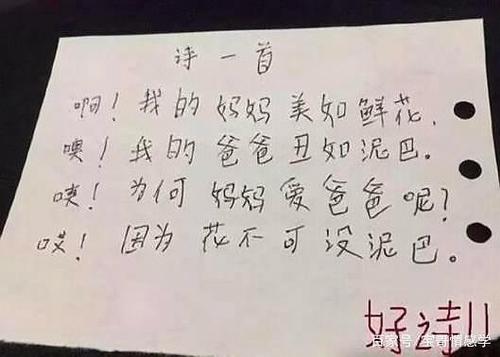 诗一首
啊！我的妈妈美如鲜花，
噢！我的爸爸丑如泥巴。
咦！为何妈妈爱爸爸呢？
哎！因为花不可没泥巴。
好诗！！
百家号/情感学